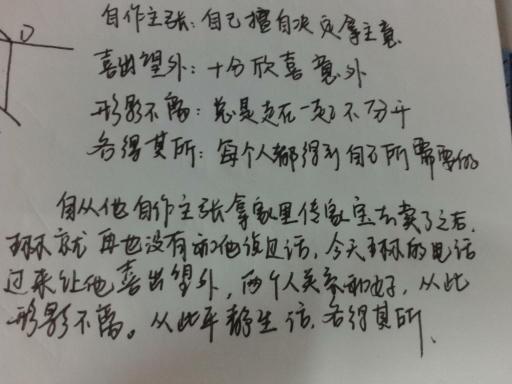 D
自作主张：自己擅自决定拿主意
喜出望外：十分欣喜意外
形影不离：总是走在一起不分开
各得其所：每个人都得到自己所需要的
自从他自作主张拿家里传家宝去卖了之后，
环就再也没有和他说过话，今天环的电话
过来让他喜出望外，两个人关系和好，从此
形影不离。从此平静生活，各得其所。